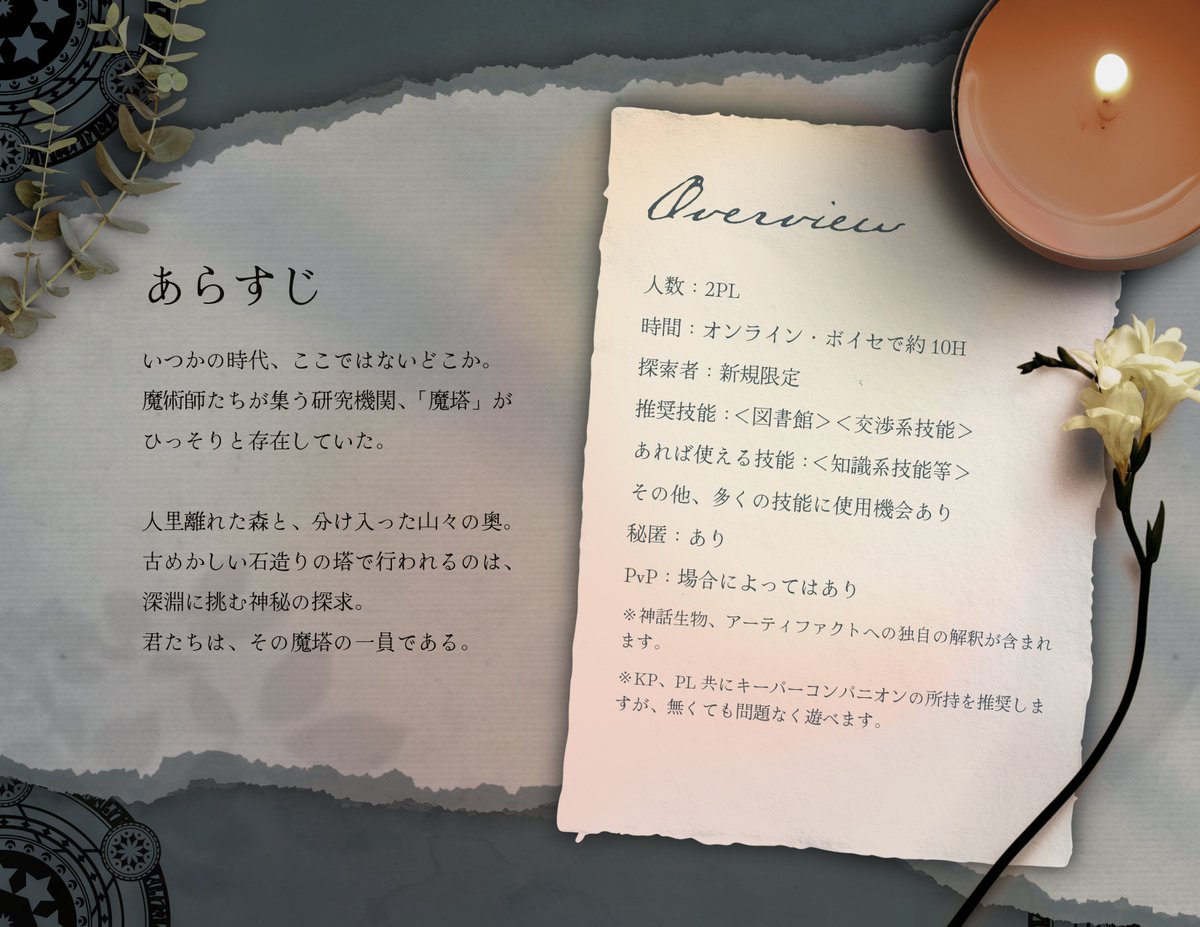 あらすじ
いつかの時代、ここではないどこか。
魔術師たちが集う研究機関、「魔塔」が
ひっそりと存在していた。
人里離れた森と、分け入った山々の奥。
古めかしい石造りの塔で行われるのは、
深淵に挑む神秘の探求。
君たちは、その魔塔の一員である。
Overview
人数：2PL
時間：オンライン・ボイセで約10H
探索者：新規限定
推奨技能：＜図書館＞＜交渉系技能＞
あれば使える技能：＜知識系技能等＞
その他、多くの技能に使用機会あり
秘匿：あり
PvP：場合によってはあり
※神話生物、アーティファクトへの独自の解釈が含まれ
ます。
※KP、PL共にキーパーコンパニオンの所持を推奨しま
すが、無くても問題なく遊べます。